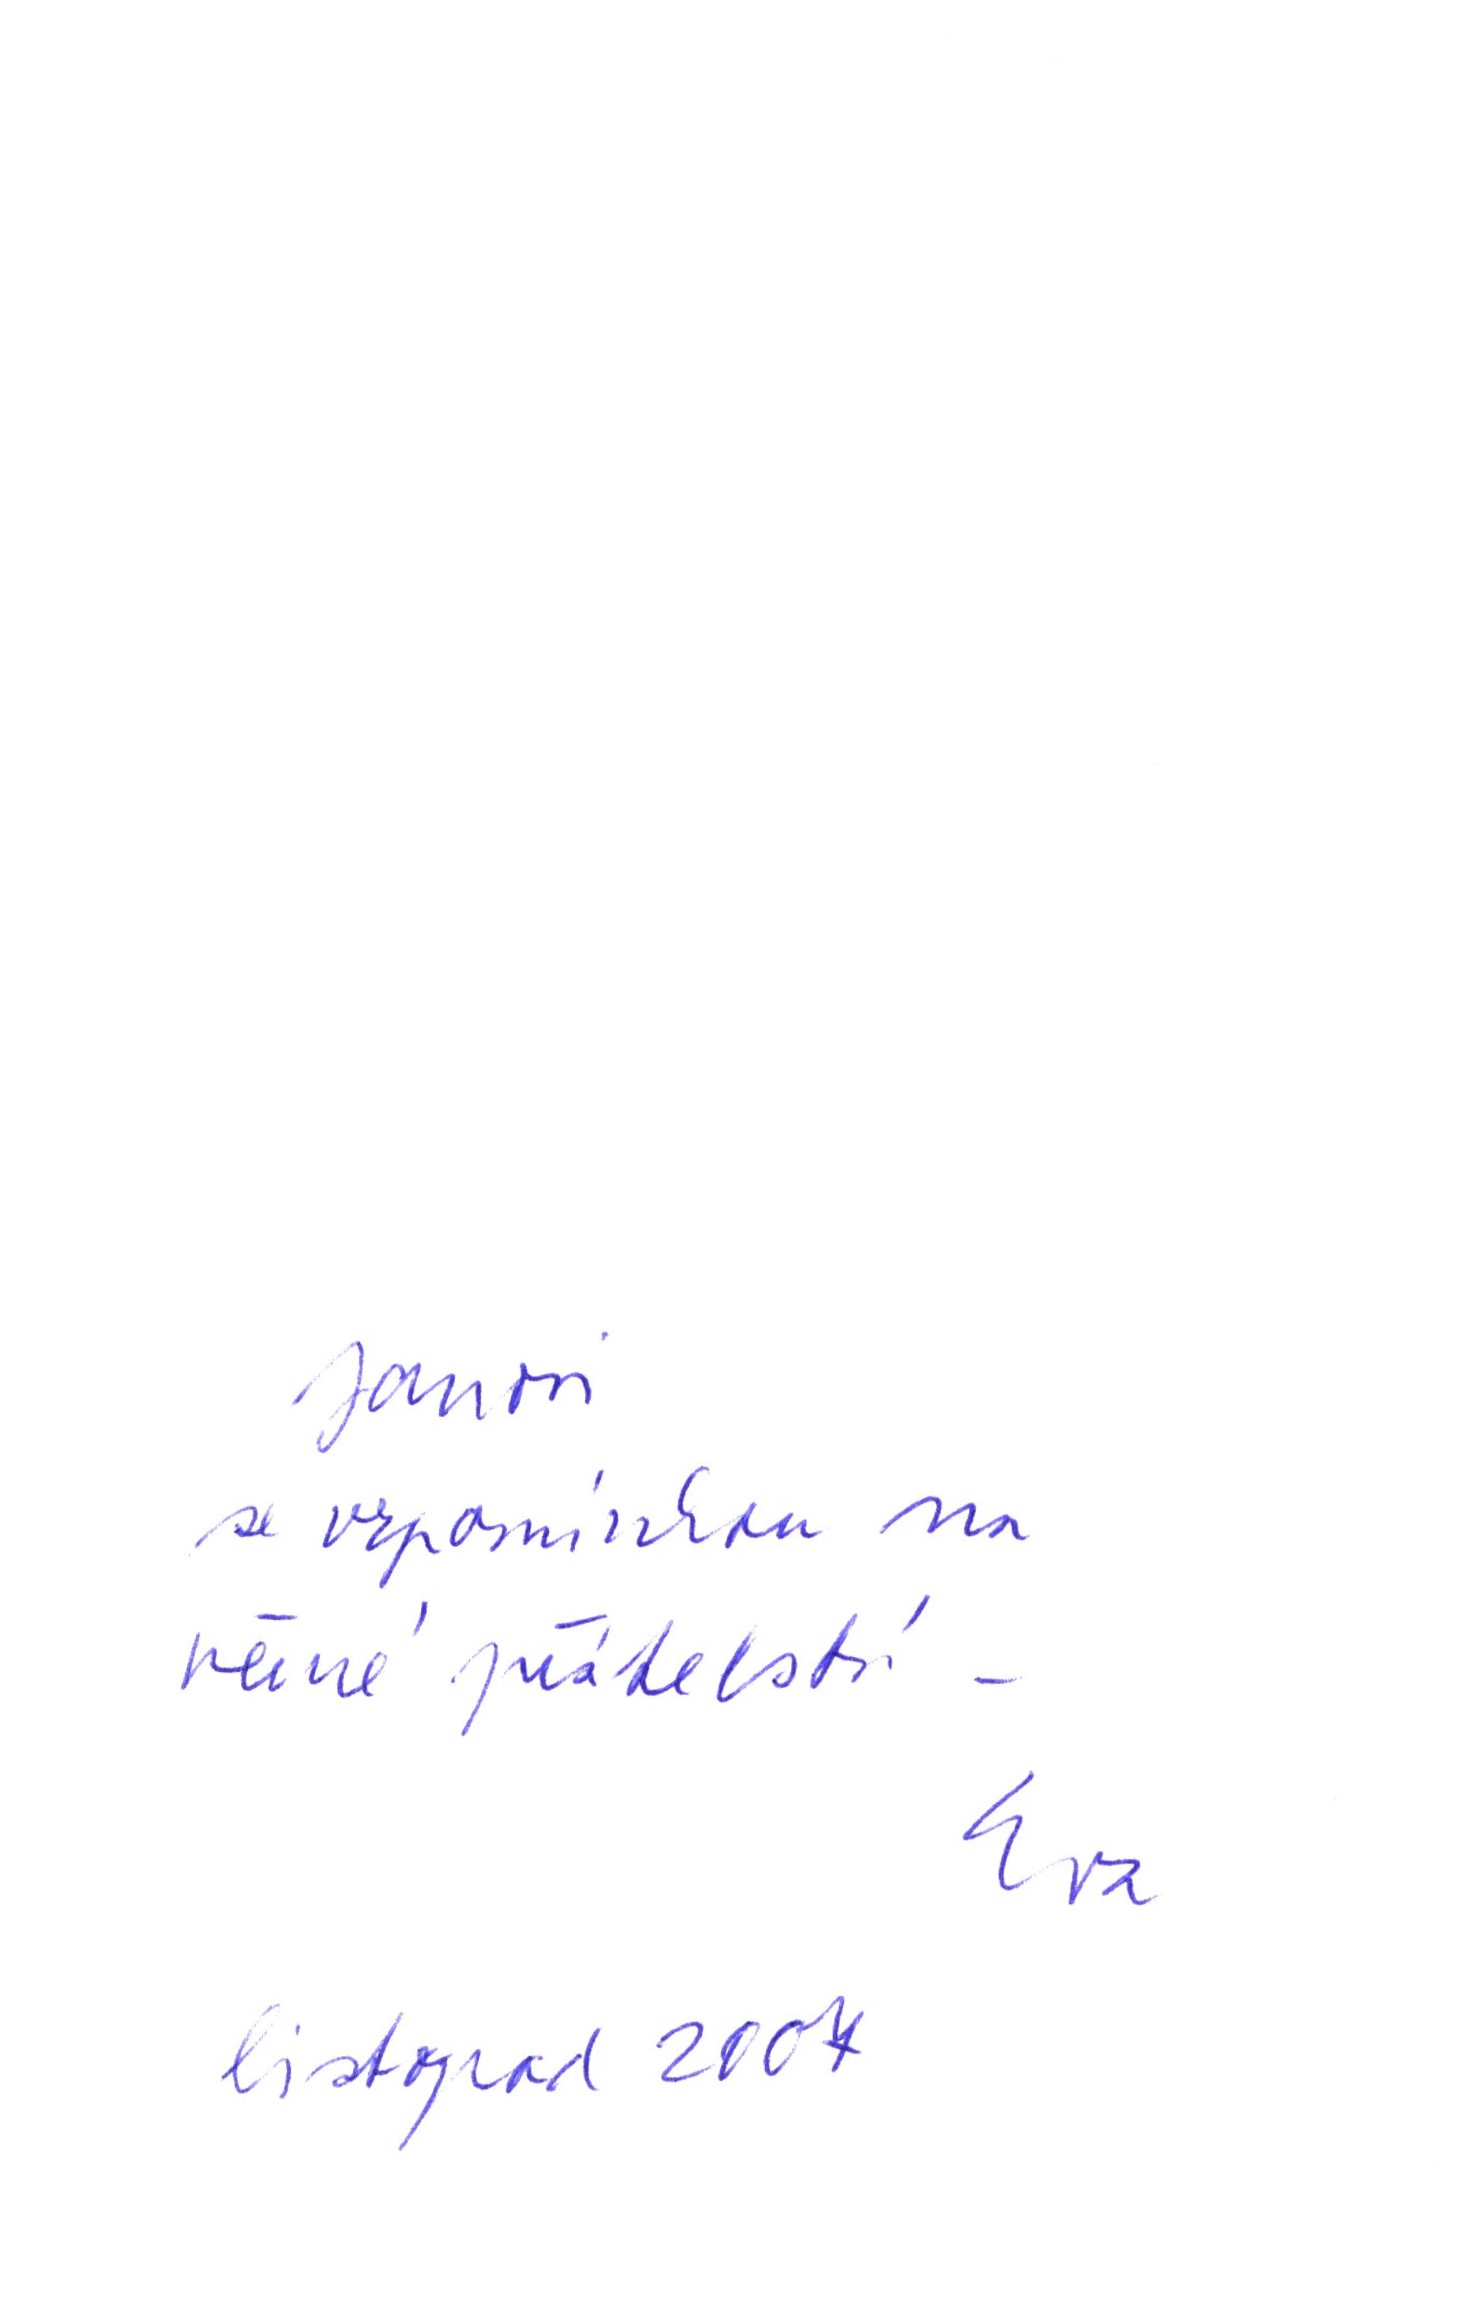 Janovi
se vzpomínkou na
věčné přátelství –
Eva
listopad 2007